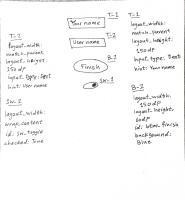 T-1
Your name
T-2
User name
B-1
Finish
Sw-1
T-2
layout_width:
match_parent
layout_height:
150 dp
input_type: Text
hint: User name
Sw-1
layout_width:
wrap_content
id: sw_toggle
checked: True
T-1
layout_width:
match_parent
layout_height:
150 dp
input_type: Text
hint: Your name
B-2
layout_width:
150dp
layout_height:
60dp
id: btn_finish
background:
Blue